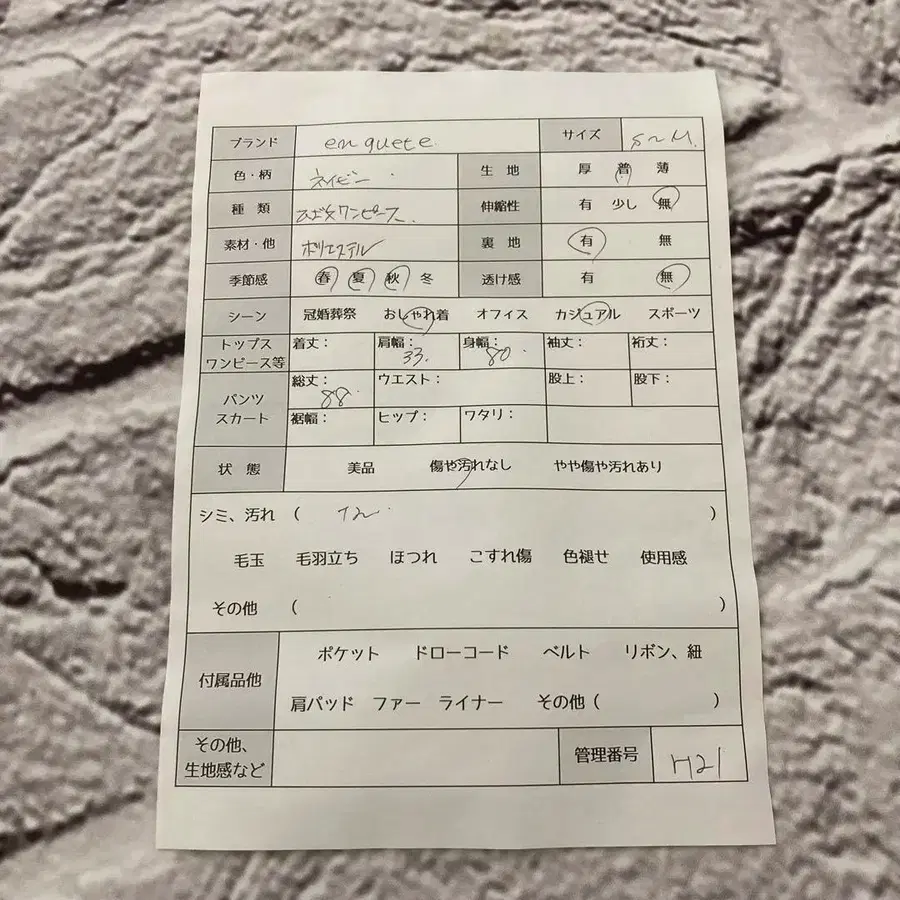 ブランド enquete サイズ S~M
色・柄 ネイビー 生地 厚 普 薄
種類 ワンピース 伸縮性 有 少し 無
素材・他 ポリエステル 裏地 有 無
季節感 春 夏 秋 冬 透け感 有 無
シーン 冠婚葬祭 おしゃれ着 オフィス カジュアル スポーツ
トップス
ワンピース等 着丈: 肩幅: 33. 身幅: 80 袖丈: 裄丈:
パンツ
スカート 総丈: 88 ウエスト: 股上: 股下:
裾幅: ヒップ: ワタリ:
状態 美品 傷や汚れなし やや傷や汚れあり
シミ、汚れ ( )
毛玉 毛羽立ち ほつれ こすれ傷 色褪せ 使用感
その他 ( )
付属品他 ポケット ドローコード ベルト リボン、紐
肩パッド ファー ライナー その他 ( )
その他、
生地感など 管理番号 H21